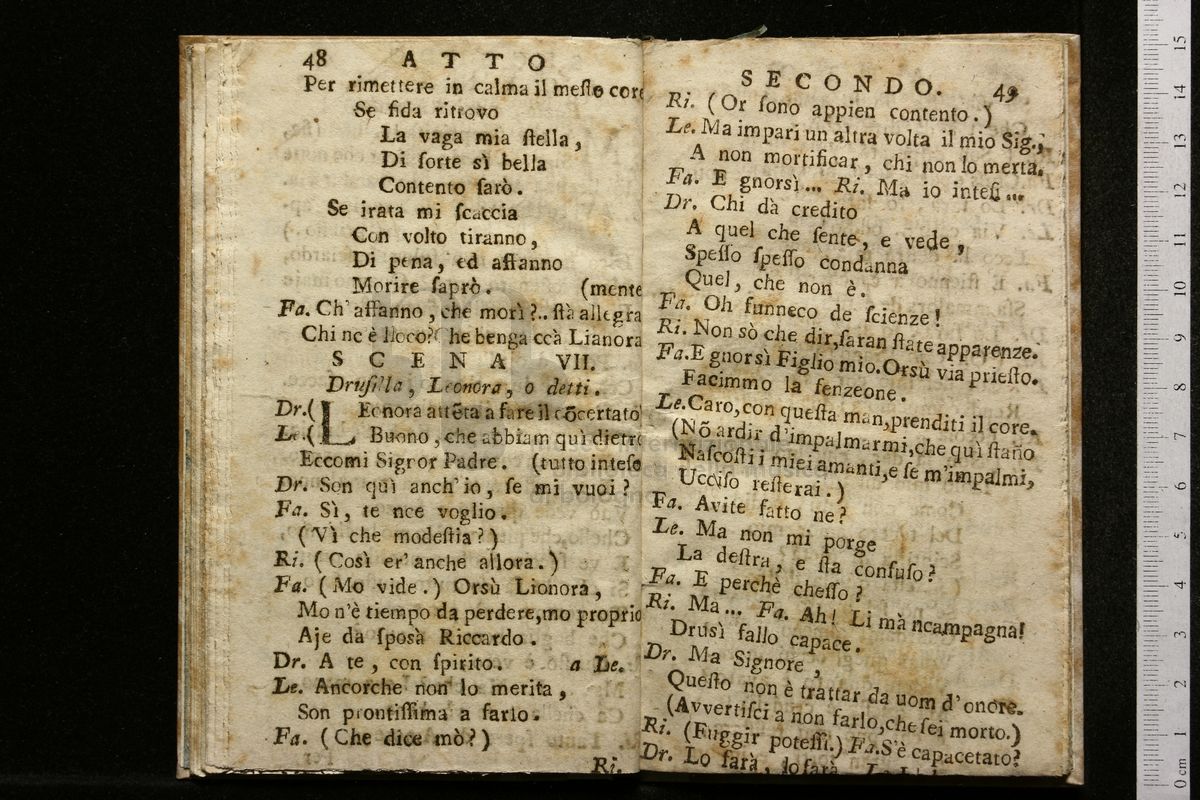 48 ATTO
Per rimettere in calma il meſto core
Se fida ritrovo
La vaga mia ſtella,
Di ſorte sì bella
Contento ſarò.
Se irata mi ſcaccia
Con volto tiranno,
Di pena, ed affanno
Morire ſaprò. (mente
Fa. Ch' affanno, che morì?.. ſtà allegra
Chi nc è lloco? Che benga ccà Lianora
SCENA VII.
Druſilla, Leonora, o detti.
Dr.( LEonora attẽta a fare il cõcertato
Le.( Buono, che abbiam quì dietro
Eccomi Signor Padre. (tutto inteſo
Dr. Son quì anch' io, ſe mi vuoi?
Fa. Sì, te nce voglio.
(Vì che modeſtia?)
Ri. (Così er' anche allora.)
Fa. (Mo vide.) Orsù Lionora,
Mo n'è tiempo da perdere, mo proprio
Aje da ſposà Riccardo.
Dr. A te, con ſpirito. a Le.
Le. Ancorche non lo merita,
Son prontiſſima a farlo.
Fa. (Che dice mò?)
Ri.
SECONDO. 49
Ri. (Or ſono appien contento.)
Le. Ma impari un altra volta il mio Sig.,
A non mortificar, chi non lo merta.
Fa. E gnorsì... Ri. Ma io inteſi...
Dr. Chi dà credito
A quel che ſente, e vede,
Speſſo ſpeſſo condanna
Quel, che non è.
Fa. Oh funneco de ſcienze!
Ri. Non sò che dir, ſaran ſtate apparenze.
Fa. E gnorsì Figlio mio. Orsù via prieſto.
Facimmo la fenzeone.
Le. Caro, con queſta man, prenditi il core.
(Nõ ardir d'impalmarmi, che quì ſtaño
Naſcoſti i miei amanti, e ſe m'impalmi,
Ucciſo reſterai.)
Fa. Avite fatto ne?
Le. Ma non mi porge
La deſtra, e ſta confuſo?
Fa. E perchè cheſſo?
Ri. Ma... Fa. Ah! Li mà ncampagna!
Drusì fallo capace.
Dr. Ma Signore,
Queſto non è trattar da uom d' onore.
(Avvertiſci a non farlo, che ſei morto.)
Ri. (Fuggir poteſſi.) Fa. S'è capacetato?
Dr. Lo ſarà, lo ſarà